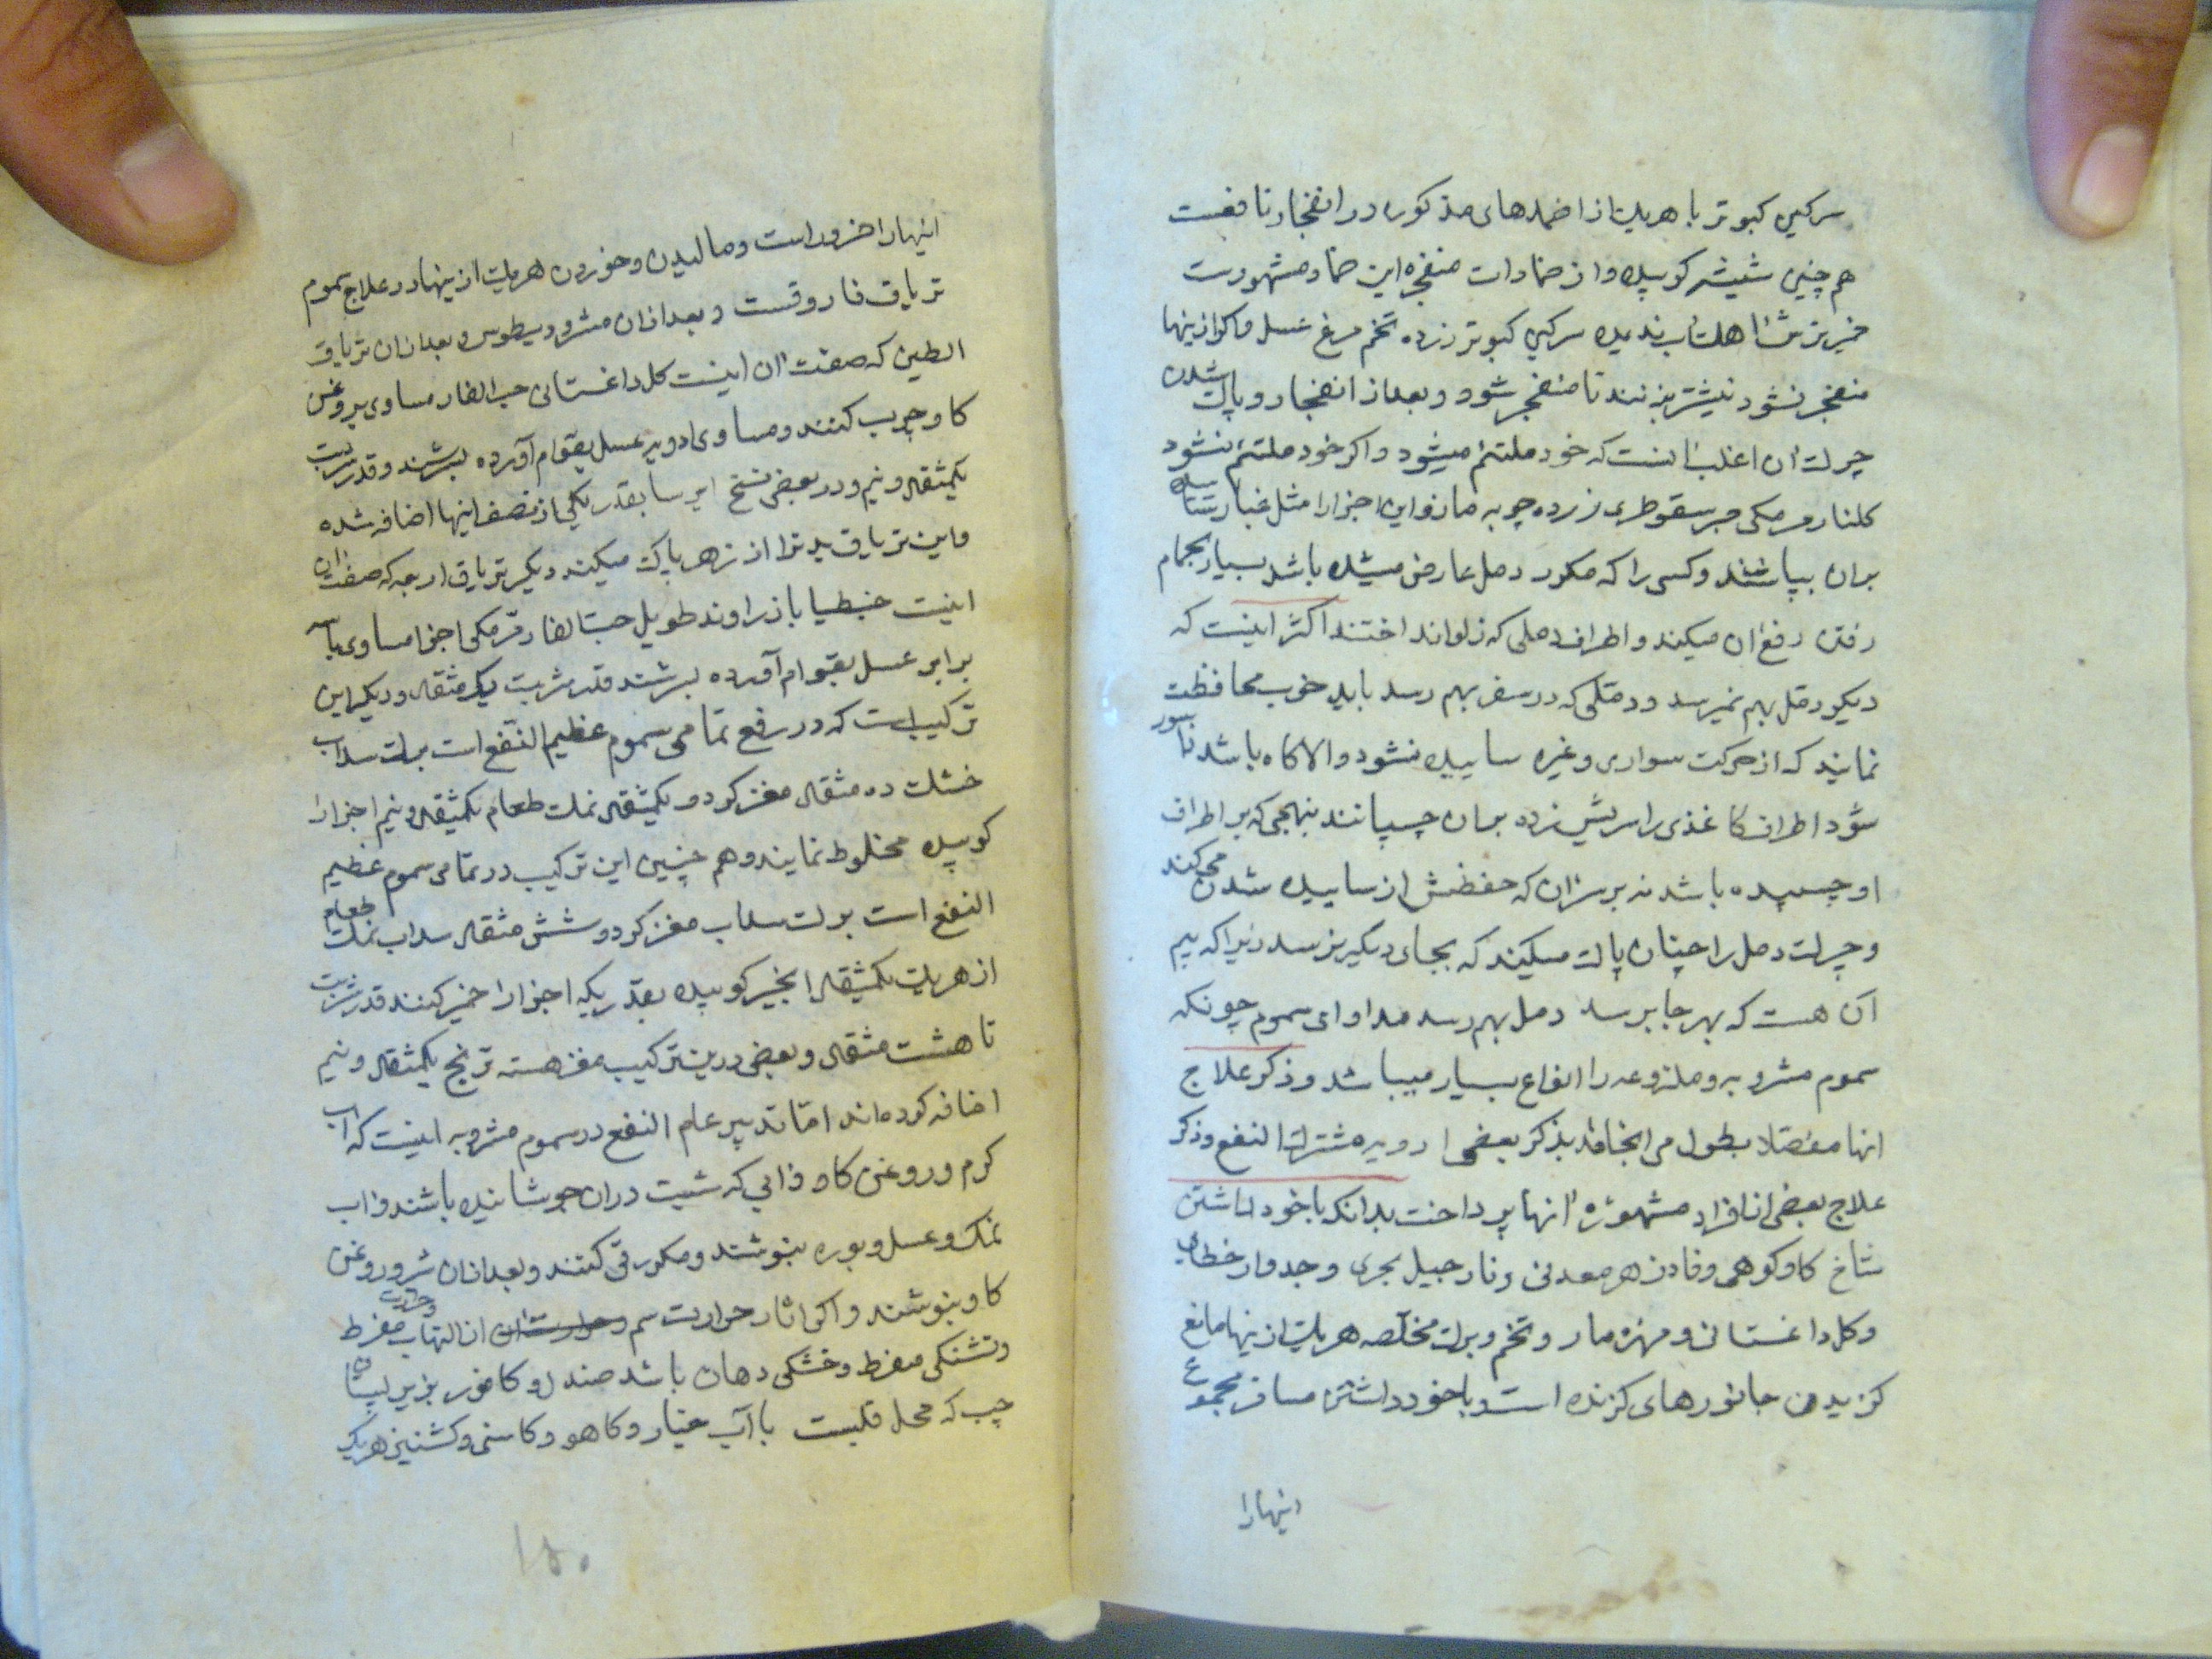 سرکین کبوتر با هریک از اضمدهای مذکوره در انفجار نافعست
هم چنین شیشه کوبیده و از ضمادات منفجره این ضماد مشهورست
خمیر ترش اهک اب ندیده سرکین کبوتر زرده تخم مرغ عسل و اکر از اینها
منفجر نشود نیشتر بزنند تا منفجر شود و بعد از انفجار و پاک شدن
چرک ان اغلب انست که خود ملتئم میشود و اکر خود ملتئم نشود
کلنار مر مکی صبر سقوطری زرده چوبه مازو این اجزا را مثل غبار ساییده
بران بپاشند و کسی را که مکرر دمل عارض میشده باشد بسیار بحمام
رفتن رفع ان میکند و اطراف دملی که زلو انداختند اکثر اینست که
دیکر دمل بهم نمیرسد و دملی که در سفر بهم رسد باید خوب محافظت
نمایند که از حرکت سواری و غیره ساییده نشود و الا کاه باشد ناسور
شود اطراف کاغذی را سریش زده بران چسپانند بنهجی که بر اطراف
او چسپیده باشد نه بر سران که حفظش از ساییده شدن میکند
و چرک دمل را چنان پاک میکنند که بجای دیکر نرسد زیرا که بیم
آن هست که بهر جا برسد دمل بهم رسد مداوای سموم چونکه
سموم مشروبه و ملذوعه را انواع بسیار میباشد و ذکر علاج
انها مفصلا بطول می انجامد بذکر بعضی ادویه مشترک النفع و ذکر
علاج بعضی از افراد مشهوره انها پرداخت بدانکه با خود داشتن
شاخ کاو کوهی و فادزهر معدنی و نارجیل بحری و جدوار خطایی
و کل داغستانی و مهره مار و تخم و برک مخلصه هریک از اینها مانع
کزیدن جانورهای کزنده است و با خود داشتن مسافر مجموع
اینها را
اینها را ضرور است و مالیدن و خوردن هریک از اینها در علاج سموم
تریاق فاروقست و بعد از ان مثرودیطوس و بعد از ان تریاق
الطین که صفت ان اینست کل داغستانی حب الغار مساوی بروغن
کاو چرب کنند و مساوی ادویه عسل بقوام آورده بسرشند و قدر شربت
یکمثقال و نیم و در بعضی نسخ ایرسا بقدر یکی از نصف اینها اضافه شده
و این تریاق بدن را از زهر پاک میکند دیکر تریاق اربعه که صفت ان
اینست جنطیانا زراوند طویل حب الغار مر مکی اجزا مساوی با سه
برابر عسل بقوام آورده بسرشند قدر شربت یک مثقال و دیکر این
ترکیب است که در رفع تمامی سموم عظیم النفع است برک سداب
خشک ده مثقال مغز کردو یکمثقال نمک طعام یکمثقال و نیم اجزا را
کوبیده مخلوط نمایند و هم چنین این ترکیب در تمامی سموم عظیم
النفع است برک سداب مغز کردو شش مثقال سداب نمک طعام
از هریک یکمثقال انجیر کوبیده بقدریکه اجزا را خمیر کنند قدر شربت
تا هشت مثقال و بعضی درین ترکیب مغز هسته ترنج یکمثقال و نیم
اضافه کرده اند اما تدبیر عام النفع در سموم مشروبه اینست که اب
کرم و روغن کاو و ابی که شبت دران جوشانیده باشند و اب
نمک و عسل و بوره بنوشند و مکرر قی کنند و بعد از ان شیر و روغن
کاو بنوشند و اکر اثار حرارت سم از التهاب مفرط
و تشنکی مفرط و خشکی دهان باشد صندل و کافور بزیر پستان
چپ که محل قلبست با آب خیار و کاهو و کاسنی و کشنیز هریک
۱۵۰